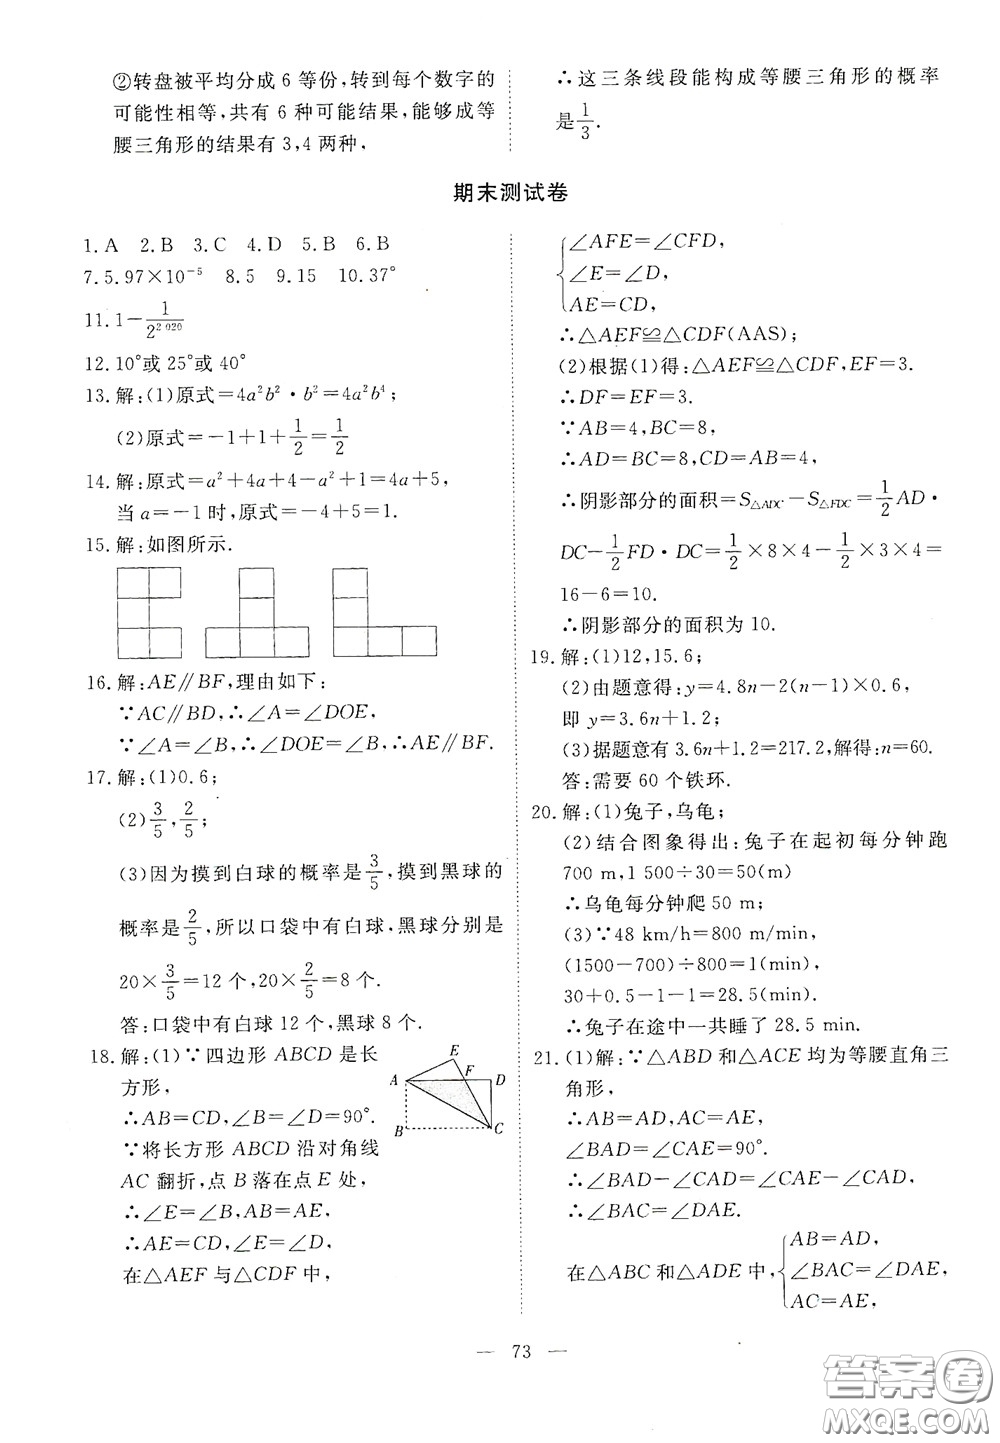 ②转盘被平均分成 6 等份,转到每个数字的
可能性相等,共有 6 种可能结果,能够成等
腰三角形的结果有 3,4 两种,
∴这三条线段能构成等腰三角形的概率
是1/3.
期末测试卷
1. A 2. B 3. C 4. D 5. B 6. B
7. 5.97×10⁻⁵ 8. 5 9. 15 10. 37°
11. 1−1/2^2 020
12. 10°或 25°或 40°
13. 解:(1)原式=4a²b²·b²=4a²b⁴;
(2)原式=−1+1+1/2=1/2
14. 解:原式=a²+4a+4−a²+1=4a+5,
当 a=−1 时,原式=−4+5=1.
15. 解:如图所示.
16. 解:AE∥BF,理由如下:
∵AC∥BD,∴∠A=∠DOE,
∵∠A=∠B,∴∠DOE=∠B,∴AE∥BF.
17. 解:(1)0.6;
(2)3/5,2/5;
(3)因为摸到白球的概率是3/5,摸到黑球的
概率是2/5,所以口袋中有白球、黑球分别是
20×3/5=12 个,20×2/5=8 个.
答:口袋中有白球 12 个,黑球 8 个.
18. 解:(1)∵四边形 ABCD 是长
方形,
∴AB=CD,∠B=∠D=90°.
∵将长方形 ABCD 沿对角线
AC 翻折,点 B 落在点 E 处,
∴∠E=∠B,AB=AE,
∴AE=CD,∠E=∠D,
在△AEF 与△CDF 中,
E
F
A
D
B
C
∠AFE=∠CFD,
∠E=∠D,
AE=CD,
∴△AEF≌△CDF(AAS);
(2)根据(1)得:△AEF≌△CDF,EF=3.
∴DF=EF=3.
∵AB=4,BC=8,
∴AD=BC=8,CD=AB=4,
∴阴影部分的面积=S△ADC−S△FDC=1/2AD·
DC−1/2FD·DC=1/2×8×4−1/2×3×4=
16−6=10.
∴阴影部分的面积为 10.
19. 解:(1)12,15.6;
(2)由题意得:y=4.8n−2(n−1)×0.6,
即 y=3.6n+1.2;
(3)据题意有 3.6n+1.2=217.2,解得:n=60.
答:需要 60 个铁环.
20. 解:(1)兔子,乌龟;
(2)结合图象得出:兔子在起初每分钟跑
700 m,1 500÷30=50(m)
∴乌龟每分钟爬 50 m;
(3)∵48 km/h=800 m/min,
(1500−700)÷800=1(min),
30+0.5−1−1=28.5(min).
∴兔子在途中一共睡了 28.5 min.
21. (1)解:∵△ABD 和△ACE 均为等腰直角三
角形,
∴AB=AD,AC=AE,
∠BAD=∠CAE=90°.
∴∠BAD−∠CAD=∠CAE−∠CAD,
∴∠BAC=∠DAE.
在△ABC 和△ADE 中,
AB=AD,
∠BAC=∠DAE,
AC=AE,
— 73 —
答案圈
MXQE.COM